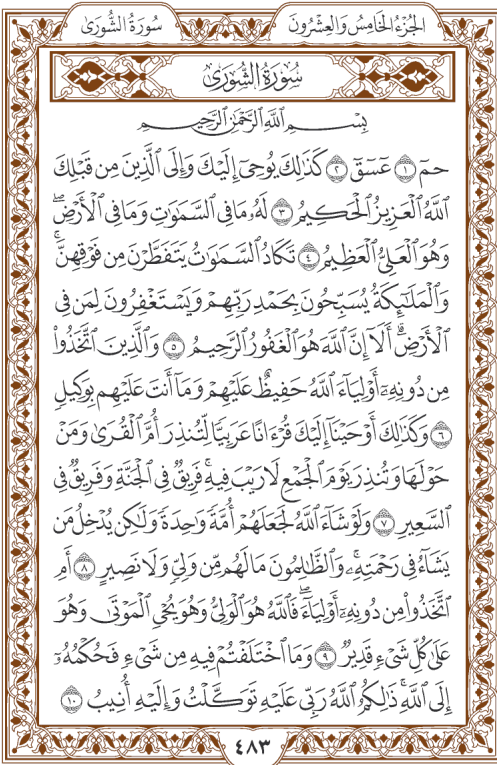 سُورَةُ الشُّورَىٰ
الجُزْءُ الخَامِسُ وَالعِشْرُونَ
سُورَةُ الشُّورَىٰ
بِسْمِ اللَّهِ الرَّحْمَٰنِ الرَّحِيمِ
حمٓ ١ عٓسٓقٓ ٢ كَذَٰلِكَ يُوحِيٓ إِلَيْكَ وَإِلَى الَّذِينَ مِن قَبْلِكَ
اللَّهُ الْعَزِيزُ الْحَكِيمُ ٣ لَهُۥ مَا فِي السَّمَٰوَٰتِ وَمَا فِي الْأَرْضِۖ
وَهُوَ الْعَلِيُّ الْعَظِيمُ ٤ تَكَادُ السَّمَٰوَٰتُ يَتَفَطَّرْنَ مِن فَوْقِهِنَّۚ
وَالْمَلَٰٓئِكَةُ يُسَبِّحُونَ بِحَمْدِ رَبِّهِمْ وَيَسْتَغْفِرُونَ لِمَن فِي
الْأَرْضِۗ أَلَآ إِنَّ اللَّهَ هُوَ الْغَفُورُ الرَّحِيمُ ٥ وَالَّذِينَ اتَّخَذُوا۟
مِن دُونِهِۦٓ أَوْلِيَآءَ اللَّهُ حَفِيظٌ عَلَيْهِمْ وَمَآ أَنتَ عَلَيْهِم بِوَكِيلٍ
٦ وَكَذَٰلِكَ أَوْحَيْنَآ إِلَيْكَ قُرْءَانًا عَرَبِيًّا لِّتُنذِرَ أُمَّ الْقُرَىٰ وَمَنْ
حَوْلَهَا وَتُنذِرَ يَوْمَ الْجَمْعِ لَا رَيْبَ فِيهِۚ فَرِيقٌ فِي الْجَنَّةِ وَفَرِيقٌ فِي
السَّعِيرِ ٧ وَلَوْ شَآءَ اللَّهُ لَجَعَلَهُمْ أُمَّةً وَٰحِدَةً وَلَٰكِن يُدْخِلُ مَن
يَشَآءُ فِي رَحْمَتِهِۦۚ وَالظَّٰلِمُونَ مَا لَهُم مِّن وَلِيٍّ وَلَا نَصِيرٍ ٨ أَمِ
اتَّخَذُوا۟ مِن دُونِهِۦٓ أَوْلِيَآءَۖ فَاللَّهُ هُوَ الْوَلِيُّ وَهُوَ يُحْيِ الْمَوْتَىٰ وَهُوَ
عَلَىٰ كُلِّ شَيْءٍ قَدِيرٌ ٩ وَمَا اخْتَلَفْتُمْ فِيهِ مِن شَيْءٍ فَحُكْمُهُۥٓ
إِلَى اللَّهِۚ ذَٰلِكُمُ اللَّهُ رَبِّي عَلَيْهِ تَوَكَّلْتُ وَإِلَيْهِ أُنِيبُ ١٠
٤٨٣